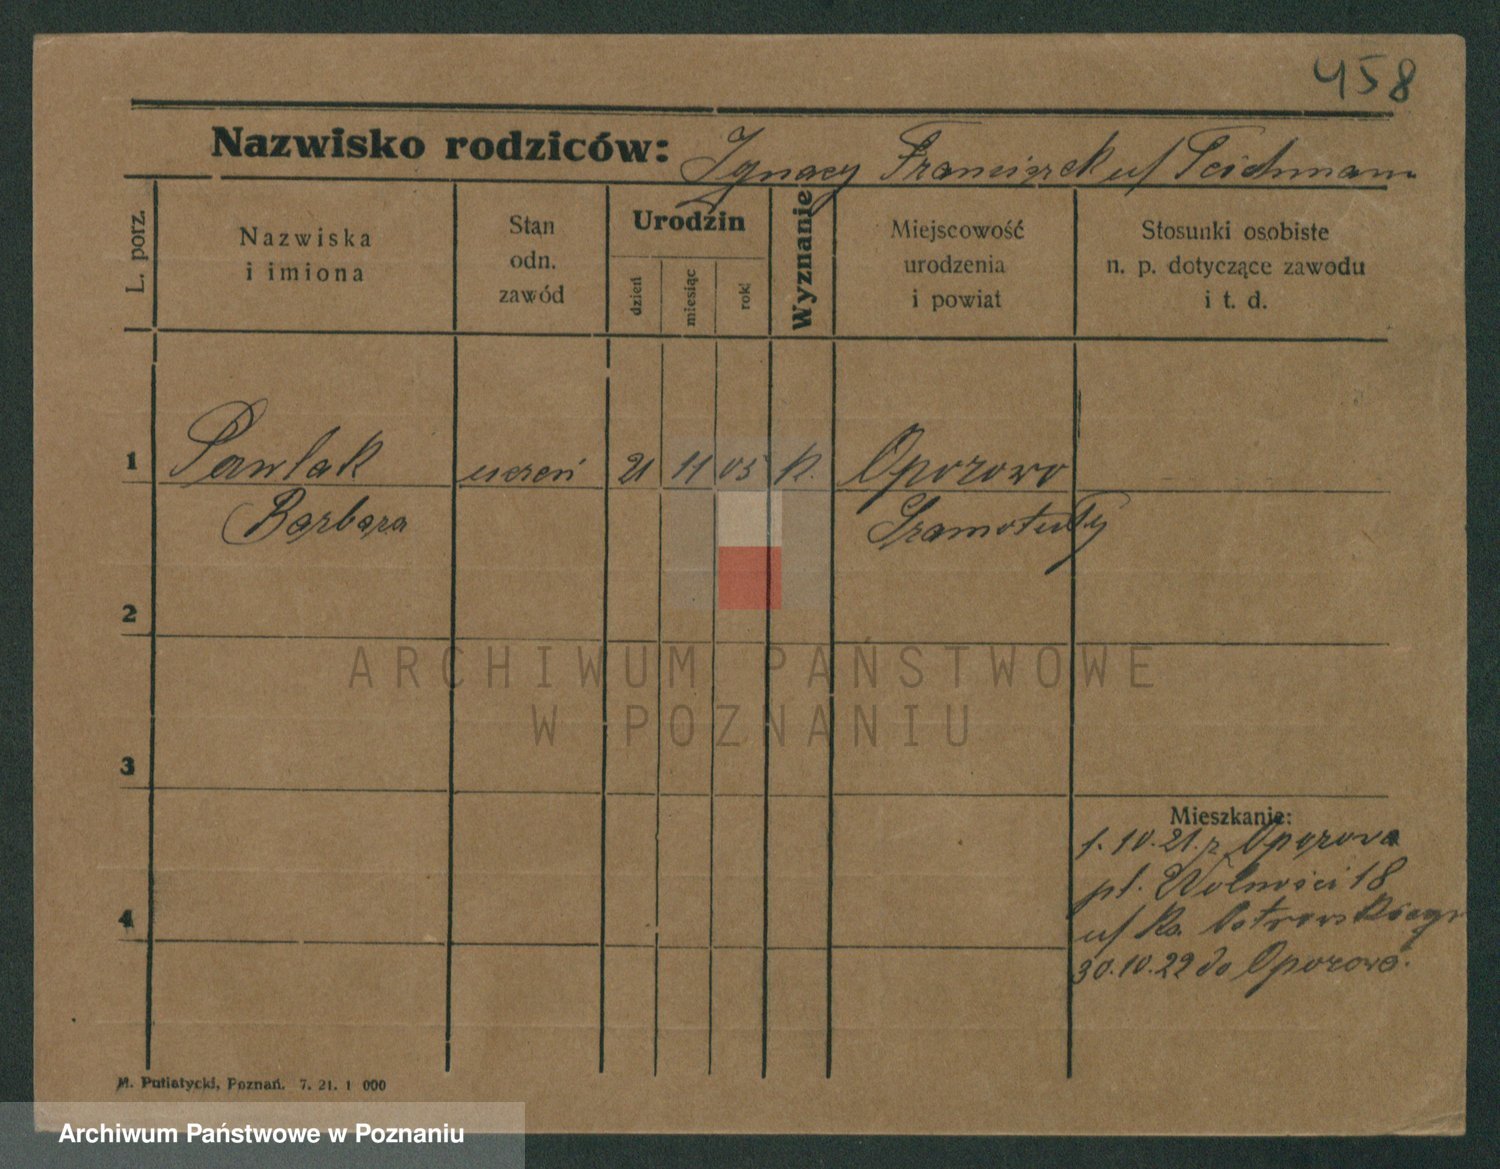 458
Nazwisko rodziców: Ignacy Franciszek u/ Teichmann
L. porz.
Nazwiska
i imiona
Stan
odn.
zawód
Urodzin
dzień
miesiąc
rok
Wyznanie
Miejscowość
urodzenia
i powiat
Stosunki osobiste
n. p. dotyczące zawodu
i t. d.
1 Pawlak uczeń 21 11 05 k. Oporowo
Barbara Szamotuły
2
3
4
ARCHIWUM PAŃSTWOWE
W POZNANIU
Mieszkanie:
1.10.21. z Oporowa
pl. Wolności 18
u/ ks.
30.10.22 do Oporowo.
M. Putiatycki, Poznań. 7. 21. 1 000
Archiwum Państwowe w Poznaniu